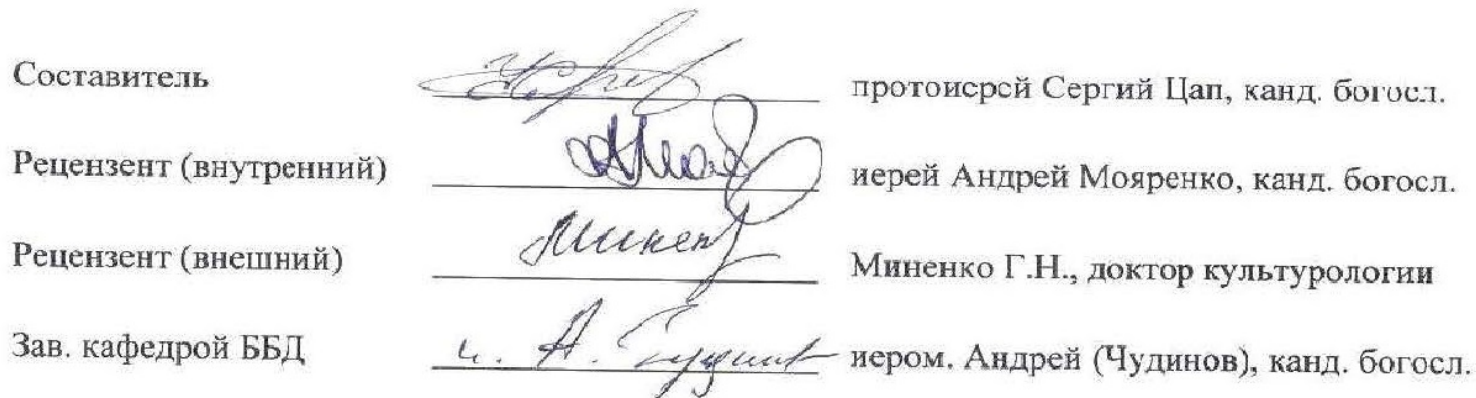 Составитель протоиерей Сергий Цап, канд. богосл.
Рецензент (внутренний) иерей Андрей Мояренко, канд. богосл.
Рецензент (внешний) Миненко Г.Н., доктор культурологии
Зав. кафедрой ББД и. А. иером. Андрей (Чудинов), канд. богосл.